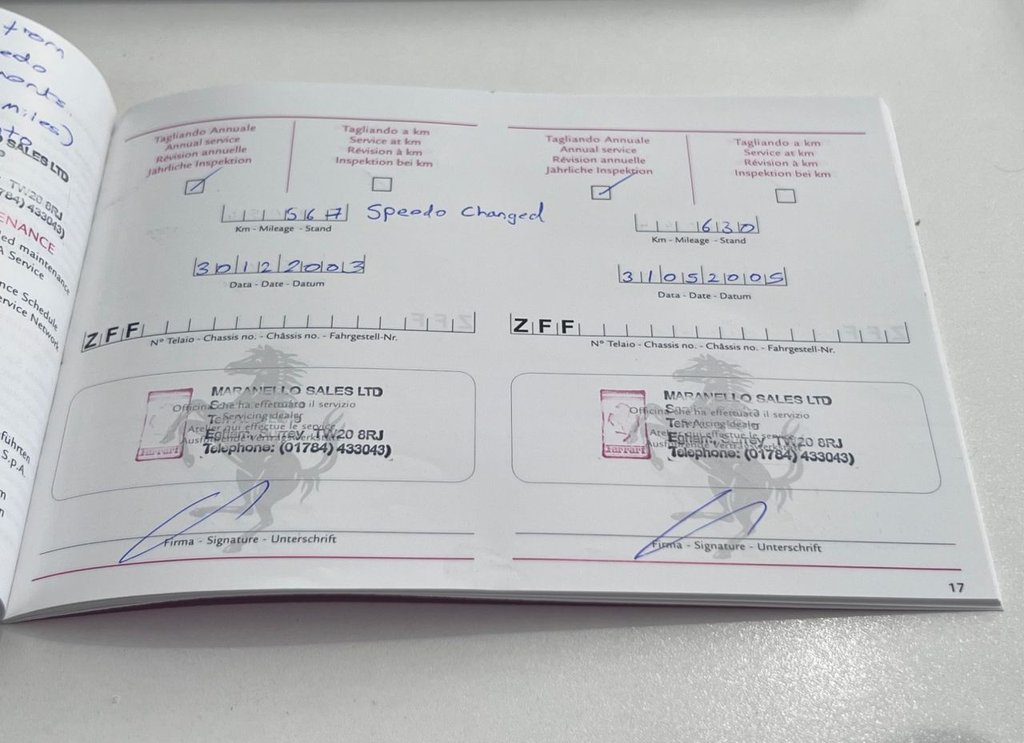 from
edo
miles)
SALES LTD
TW20 8RJ
784) 433043)
ENANCE
ed maintenance
A Service
nce Schedule
ervice Network
führten
S.p.A.
Tagliando Annuale
Annual service
Révision annuelle
Jahrliche Inspektion
Tagliando a km
Service at km
Révision à km
Inspektion bei km
567 Speedo Changed
Km - Mileage - Stand
30122003
Data - Date - Datum
ZFF
N° Telaio - Chassis no. - Châssis no. - Fahrgestell-Nr.
MARANELLO SALES LTD
Officina che ha effettuato il servizio
Servicing dealer
Atelier qui effectue le service
TW20 8RJ
Telephone: (01784) 433043)
Ferrari
Firma - Signature - Unterschrift
Tagliando Annuale
Annual service
Révision annuelle
Jahrliche Inspektion
Tagliando a km
Service at km
Révision à km
Inspektion bei km
630
Km - Mileage - Stand
31052005
Data - Date - Datum
ZFF
N° Telaio - Chassis no. - Châssis no. - Fahrgestell-Nr.
MARANELLO SALES LTD
Officina che ha effettuato il servizio
TW20 8RJ
Telephone: (01784) 433043)
Ferrari
Firma - Signature - Unterschrift
17